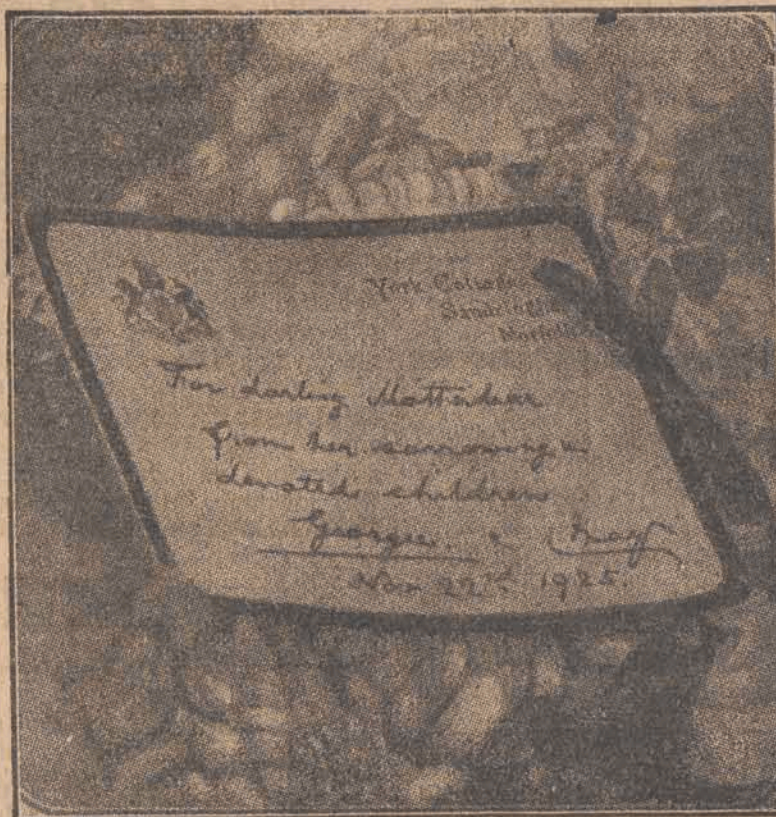 York Cottage
Sandringham
Norfolk
For darling Motherdear
from her sorrowing &
devoted children
Georgie. & May
Nov 22nd 1925.